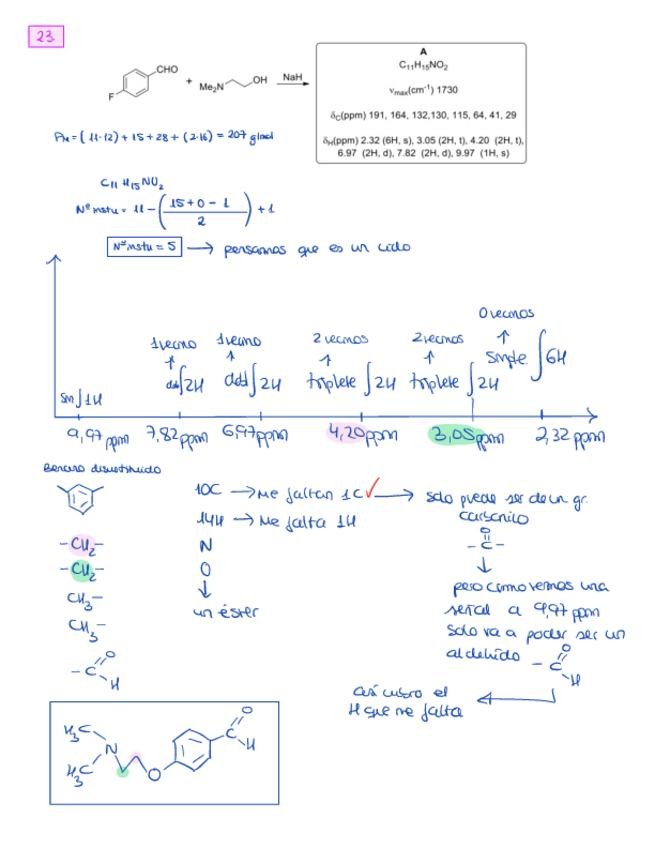 23
CHO
F
+
Me₂N
OH
NaH
A
C₁₁H₁₅NO₂
νmax(cm⁻¹) 1730
δC(ppm) 191, 164, 132,130, 115, 64, 41, 29
δH(ppm) 2.32 (6H, s), 3.05 (2H, t), 4.20 (2H, t),
6.97 (2H, d), 7.82 (2H, d), 9.97 (1H, s)
Pm = (11·12) + 15 + 28 + (2·16) = 207 g/mol
C₁₁ H₁₅ NO₂
Nº instu = 11 - (15 + 0 - 1 / 2) + 1
Nº instu = 5 → pensamos que es un ciclo
0 vecinos
1 vecino 1 vecino 2 vecinos 2 vecinos
simple ∫6H
∫2H ∫2H triplete ∫2H triplete ∫2H
∫1H
9,97 ppm 7,82 ppm 6,97 ppm 4,20 ppm 3,05 ppm 2,32 ppm
Benceno disustituido
10C → Me faltan 1C ✓ → solo puede ser de un gr.
carbonilo
14H → Me falta 1H
O
-C-
-CH₂-
N
-CH₂-
O
CH₃-
un éster
CH₃-
pero como vemos una
señal a 9,97 ppm
solo va a poder ser un
aldehído -C O H
-C O H
así cubro el
H que me falta
H₃C
N
H₃C
O
C
O
H